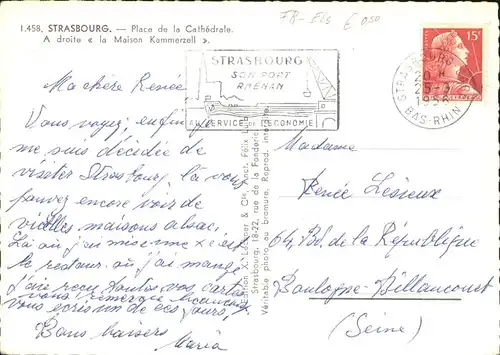 1.458, STRASBOURG. — Place de la Cathédrale.
A droite « la Maison Kammerzell ».
FR-
£ 050
STRASBOURG
SON PORT
RHÉNAN
AU SERVICE DE L'ÉCONOMIE
15F
STRASBOURG
20 H
25-
1956
BAS-RHIN
Ma chère Renée
Vous voyez, enfin je
me suis décidée de
visiter Strasbourg, là vous
pouvez encore voir de
vieilles maisons alsac.
Là où j'ai mis une x c'est
le restaur. où j'ai mangé
J'ai reçu toutes vos cartes
vous remercie beaucoup
vous écrirai un de ces jours,
Bons baisers
Maria
Madame
Renée Lesieux
64, Bd. de la République
Boulogne-Billancourt
(Seine)
Strasbourg, 18-22, rue de la Fonderie
Véritable photo au bromure. Reprod. interdite.